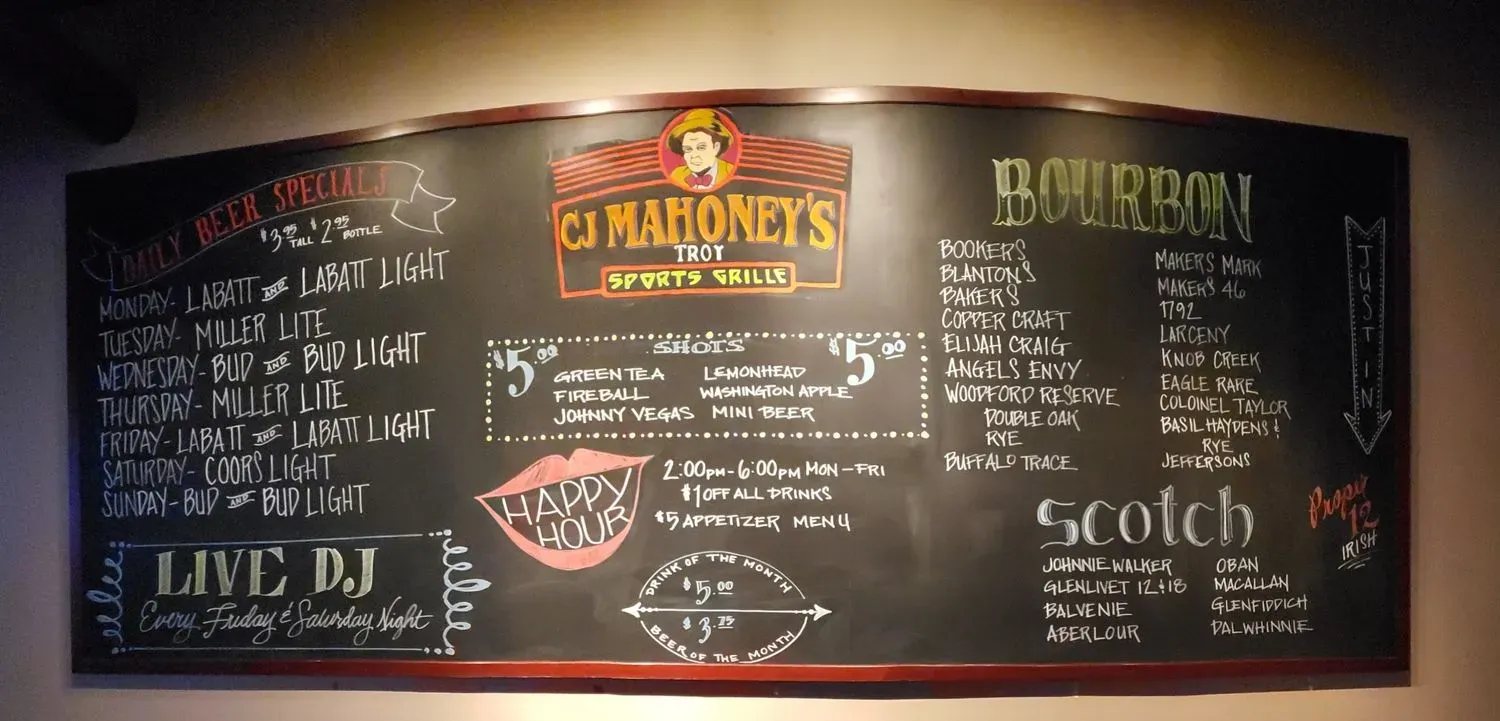 DAILY BEER SPECIALS
$3.95 TALL $2.95 BOTTLE
MONDAY- LABATT AND LABATT LIGHT
TUESDAY- MILLER LITE
WEDNESDAY- BUD AND BUD LIGHT
THURSDAY- MILLER LITE
FRIDAY- LABATT AND LABATT LIGHT
SATURDAY- COORS LIGHT
SUNDAY- BUD AND BUD LIGHT
LIVE DJ
Every Friday & Saturday Night
CJ MAHONEY'S
TROY
SPORTS GRILLE
SHOTS
$5.00 $5.00
GREEN TEA LEMONHEAD
FIREBALL WASHINGTON APPLE
JOHNNY VEGAS MINI BEER
HAPPY
HOUR
2:00PM-6:00PM MON-FRI
$1 OFF ALL DRINKS
$5 APPETIZER MENU
DRINK OF THE MONTH
$5.00
$3.75
BEER OF THE MONTH
BOURBON
BOOKERS
BLANTONS
BAKERS
COPPER CRAFT
ELIJAH CRAIG
ANGELS ENVY
WOODFORD RESERVE
DOUBLE OAK
RYE
BUFFALO TRACE
MAKERS MARK
MAKERS 46
1792
LARCENY
KNOB CREEK
EAGLE RARE
COLOINEL TAYLOR
BASIL HAYDENS &
RYE
JEFFERSONS
Scotch
JOHNNIE WALKER
GLENLIVET 12 & 18
BALVENIE
ABERLOUR
OBAN
MACALLAN
GLENFIDDICH
DALWHINNIE
JUST IN
Proper
12
IRISH